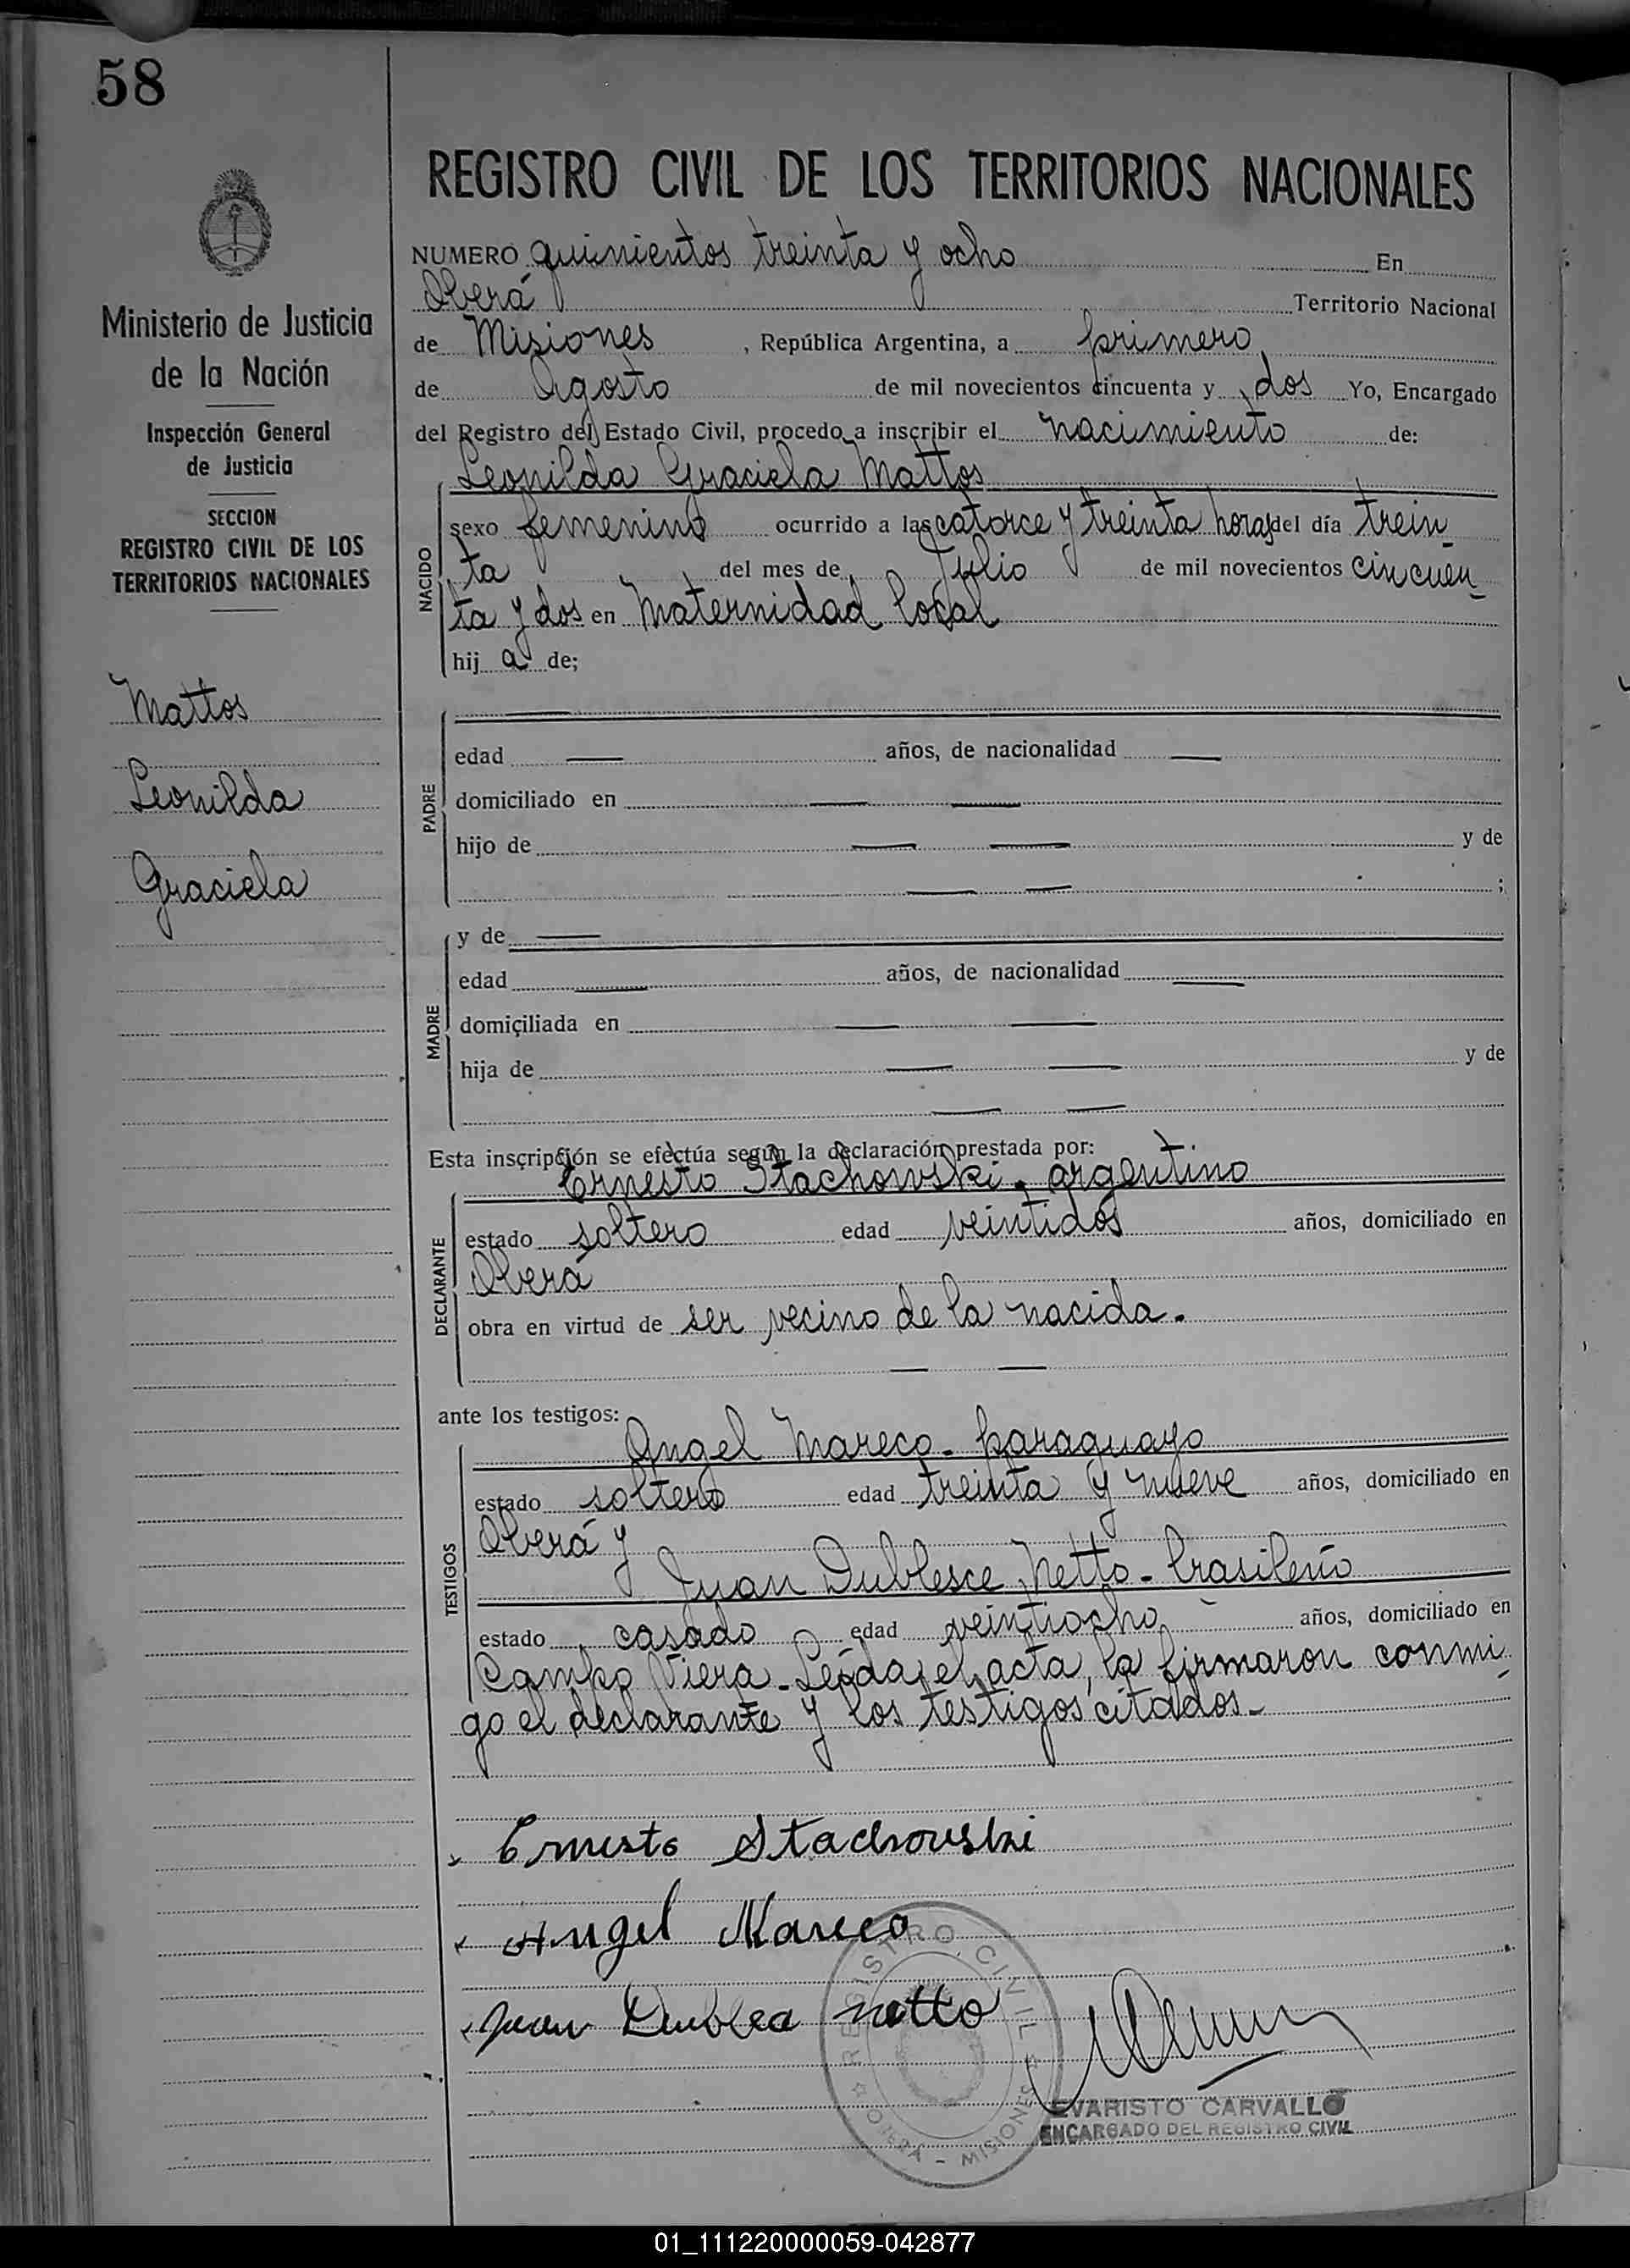 58
Ministerio de Justicia
de la Nación
Inspección General
de Justicia
SECCION
REGISTRO CIVIL DE LOS
TERRITORIOS NACIONALES
Mattos
Leonilda
Graciela
REGISTRO CIVIL DE LOS TERRITORIOS NACIONALES
NUMERO quinientos treinta y ocho En
Oberá Territorio Nacional
de Misiones, República Argentina, a primero
de Agosto de mil novecientos cincuenta y dos Yo, Encargado
del Registro del Estado Civil, procedo a inscribir el nacimiento de:
Leonilda Graciela Mattos
NACIDO
sexo femenino ocurrido a las catorce y treinta horas del día trein_
ta del mes de Julio de mil novecientos cincuen_
ta y dos en Maternidad local
hij a de;
PADRE
edad años, de nacionalidad
domiciliado en
hijo de y de
;
MADRE
y de
edad años, de nacionalidad
domiciliada en
hija de y de
Esta inscripción se efectúa según la declaración prestada por:
Ernesto Stachowski. argentino
DECLARANTE
estado soltero edad veintidós años, domiciliado en
Oberá
obra en virtud de ser vecino de la nacida.
ante los testigos:
Angel Mareco - paraguayo
TESTIGOS
estado soltero edad treinta y nueve años, domiciliado en
Oberá y
Juan Dublesce Netto - brasileño
estado casado edad veintiocho años, domiciliado en
Campo Viera - Leída el acta, la firmaron conmi_
go el declarante y los testigos citados -
Ernesto Stachowski
Angel Mareco
Juan Netto
REGISTRO CIVIL
OBERÁ - MISIONES
EVARISTO CARVALLO
ENCARGADO DEL REGISTRO CIVIL
01_111220000059-042877